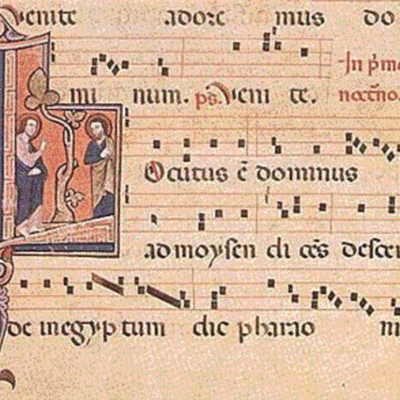 Venite adore mus do
mi num. ps. Veni te. In p̄mo
noct̄no.
Locutus ē dominus
ad moysen di cēs descen
de in egyp tum dic pharao